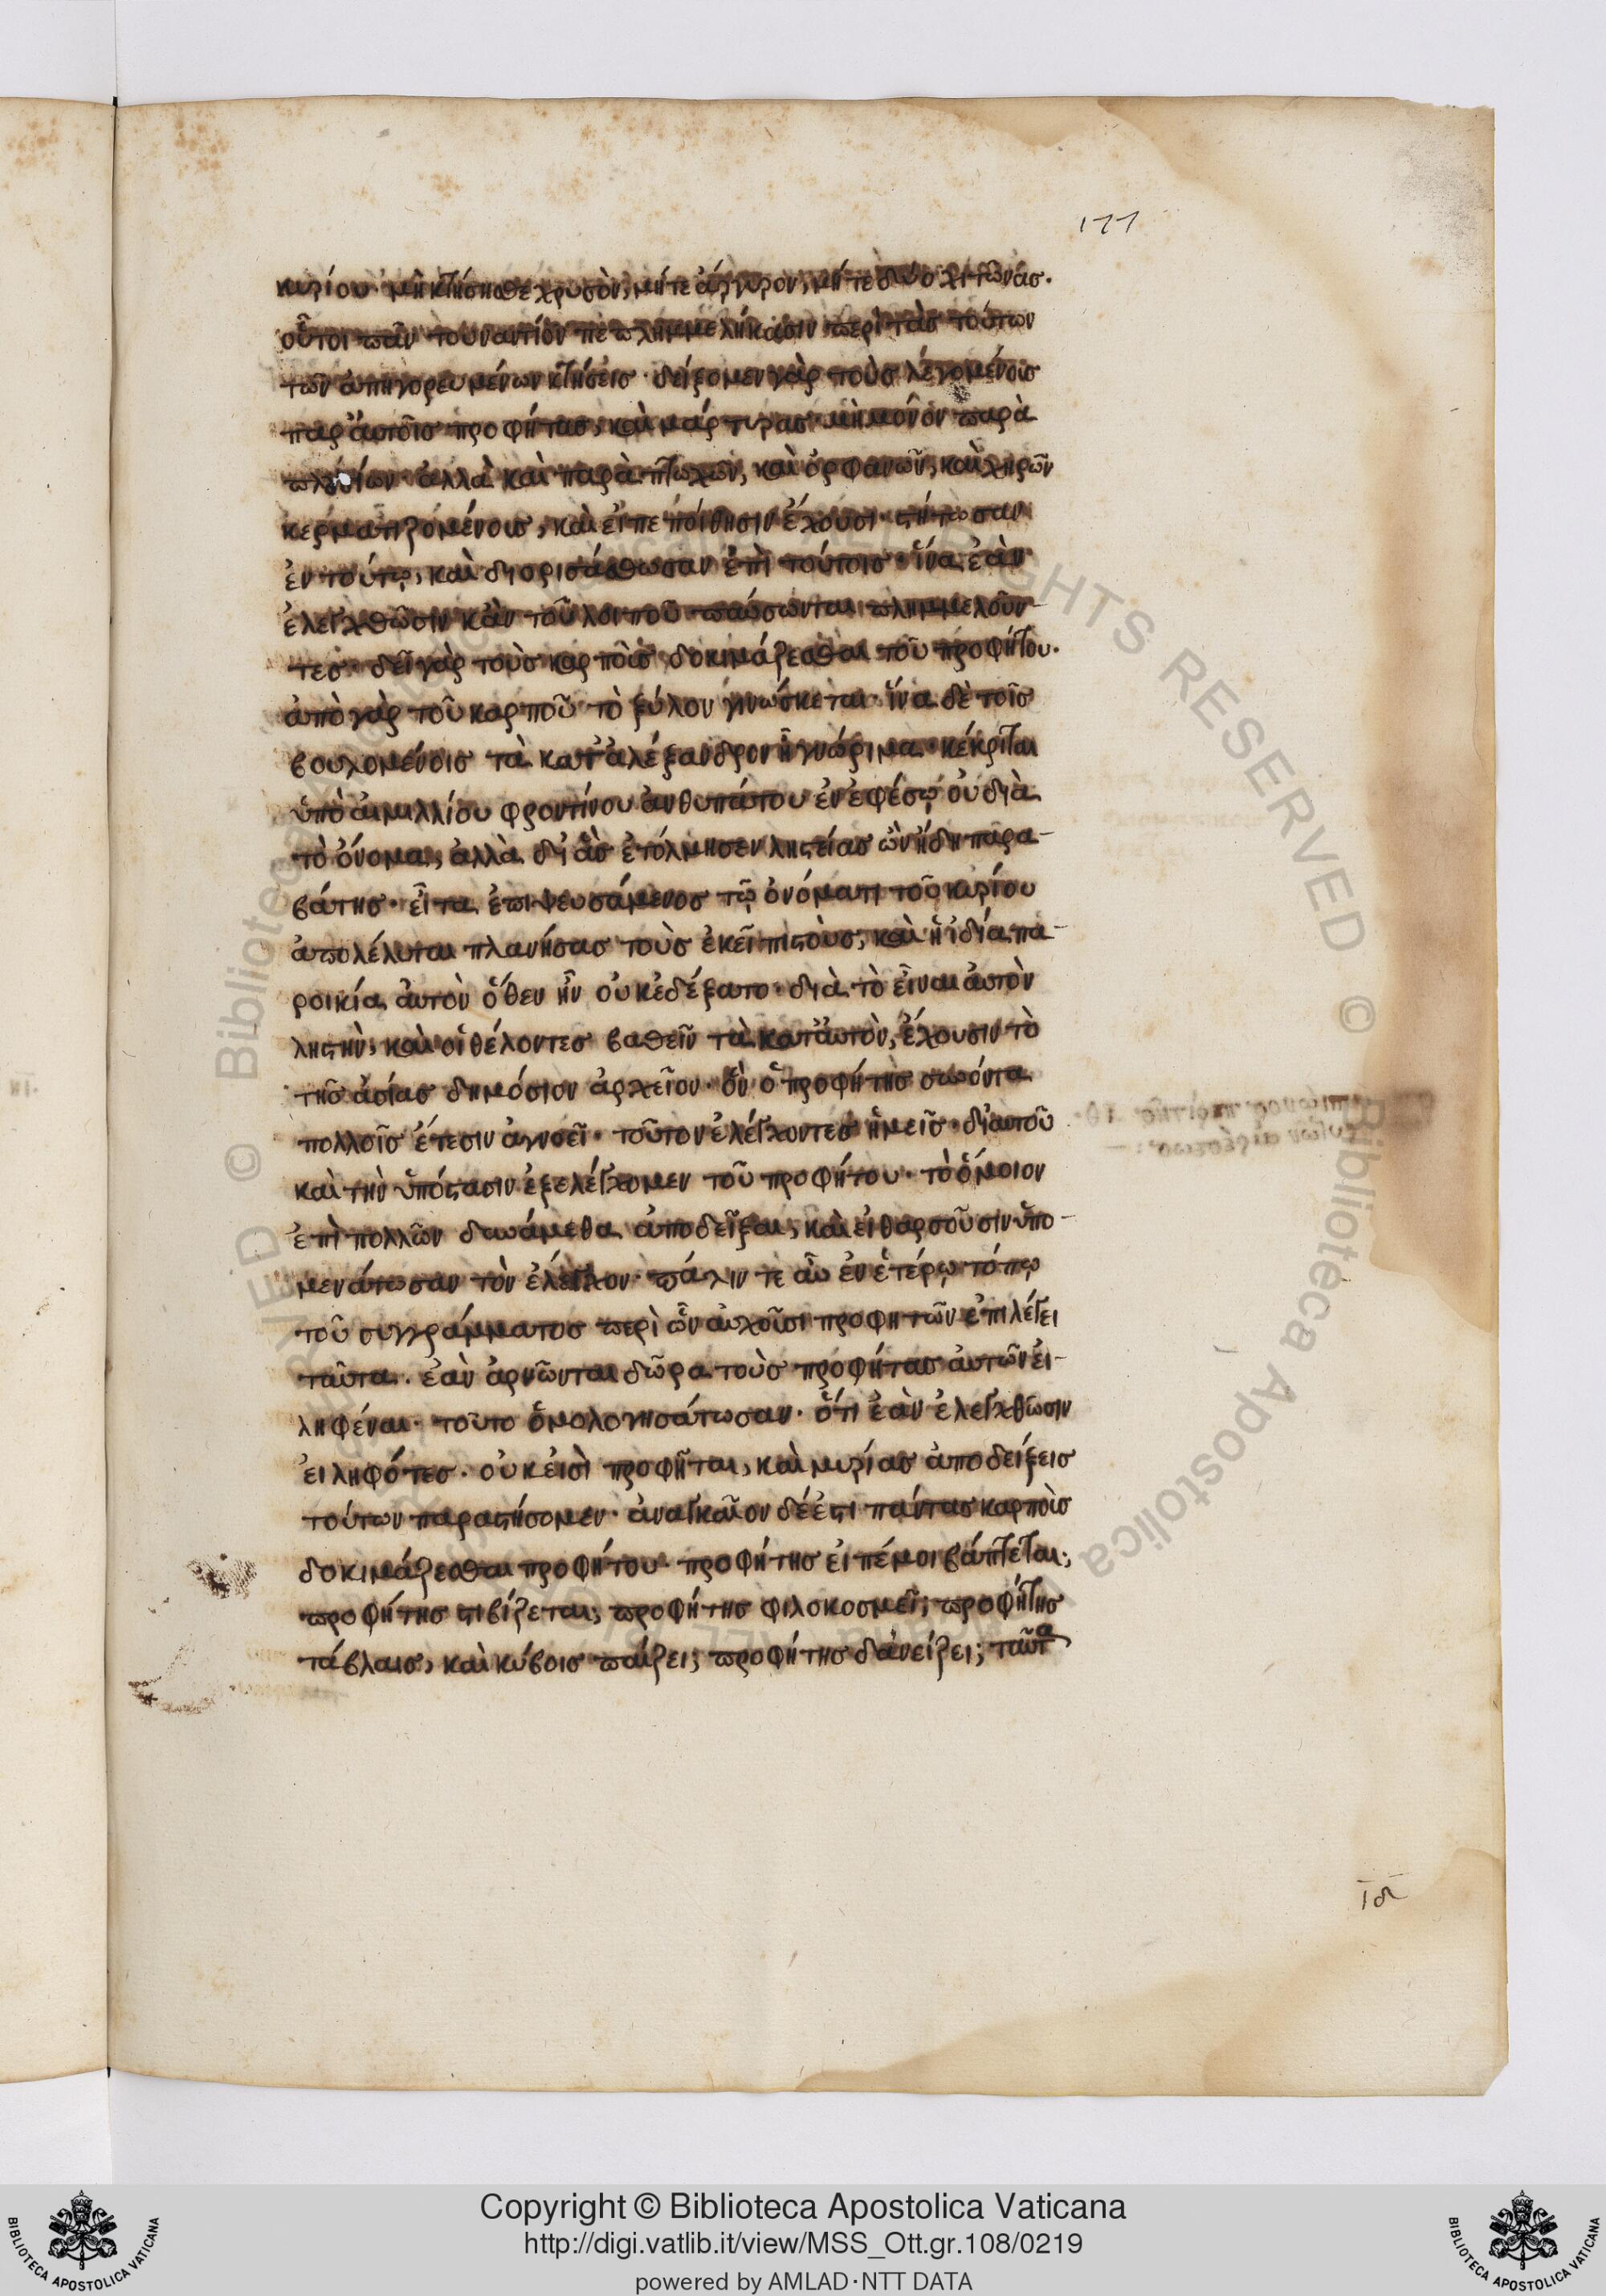 177
κυρίου· μὴ κτήσησθε χρυσὸν, μήτε ἄργυρον, μήτε δύο χιτῶνας·
οὗτοι πᾶν τοὐναντίον πεπλημμελήκασιν περὶ τὰς τούτων
τῶν ἀπηγορευμένων κτήσεις· δείξομεν γὰρ τοὺς λεγομένους
παρ' αὐτοῖς προφήτας, καὶ μάρτυρας μὴ μόνον παρὰ
πλουσίων· ἀλλὰ καὶ παρὰ πτωχῶν, καὶ ὀρφανῶν, καὶ χηρῶν
κερματιζομένους, καὶ εἰ πεποίθησιν ἔχουσι· στήτωσαν
ἐν τούτῳ, καὶ διορισάσθωσαν ἐπὶ τούτοις· ἵνα ἐὰν
ἐλεγχθῶσιν κἂν τοῦ λοιποῦ παύσωνται πλημμελοῦν-
τες· δεῖ γὰρ τοὺς καρποὺς δοκιμάζεσθαι τοῦ προφήτου·
ἀπὸ γὰρ τοῦ καρποῦ τὸ ξύλον γινώσκεται· ἵνα δὲ τοῖς
βουλομένοις τὰ κατ' ἀλέξανδρον ἦ γνώριμα· κέκριται
ὑπὸ αἰμιλλίου φροντίνου ἀνθυπάτου ἐν ἐφέσῳ οὐ διὰ
τὸ ὄνομα, ἀλλὰ δι' ἃς ἐτόλμησεν ληστείας ὢν ἤδη παρα-
βάτης· εἶτα ἐπιψευσάμενος τῷ ὀνόματι τοῦ κυρίου
ἀπολέλυται πλανήσας τοὺς ἐκεῖ πιστοὺς, καὶ ἡ ἰδία πα-
ροικία αὐτὸν ὅθεν ἦν οὐκ ἐδέξατο· διὰ τὸ εἶναι αὐτὸν
ληστὴν, καὶ οἱ θέλοντες βαθεῖν τὰ κατ' αὐτὸν, ἔχουσιν τὸ
τῆς ἀσίας δημόσιον ἀρχεῖον· ὃν ὁ προφήτης συνόντα
πολλοῖς ἔτεσιν ἀγνοεῖ· τοῦτον ἐλέγχοντες ἡμεῖς· δι' αὐτοῦ
καὶ τὴν ὑπόστασιν ἐξελέγχομεν τοῦ προφήτου· τὸ ὅμοιον
ἐπὶ πολλῶν δυνάμεθα ἀποδεῖξαι, καὶ εἰ θαρσοῦσιν ὑπο-
μενάτωσαν τὸν ἔλεγχον· πάλιν τε αὖ ἐν ἑτέρῳ τόπῳ
τοῦ συγγράμματος περὶ ὧν αὐχοῦσι προφητῶν ἐπιλέγει
ταῦτα· ἐὰν ἀρνῶνται δῶρα τοὺς προφήτας αὐτῶν εἰ-
ληφέναι· τοῦτο ὁμολογησάτωσαν· ὅτι ἐὰν ἐλεγχθῶσιν
εἰληφότες· οὐκ εἰσὶ προφῆται, καὶ μυρίας ἀποδείξεις
τούτων παραστήσομεν· ἀναγκαῖον δέ ἐστι πάντας καρποὺς
δοκιμάζεσθαι προφήτου· προφήτης εἰπέ μοι βάπτεται;
προφήτης στιβίζεται; προφήτης φιλοκοσμεῖ; προφήτης
τάβλαις, καὶ κύβοις παίζει; προφήτης δανείζει; ταῦτα
ιδ
Copyright © Biblioteca Apostolica Vaticana
http://digi.vatlib.it/view/MSS_Ott.gr.108/0219
powered by AMLAD·NTT DATA